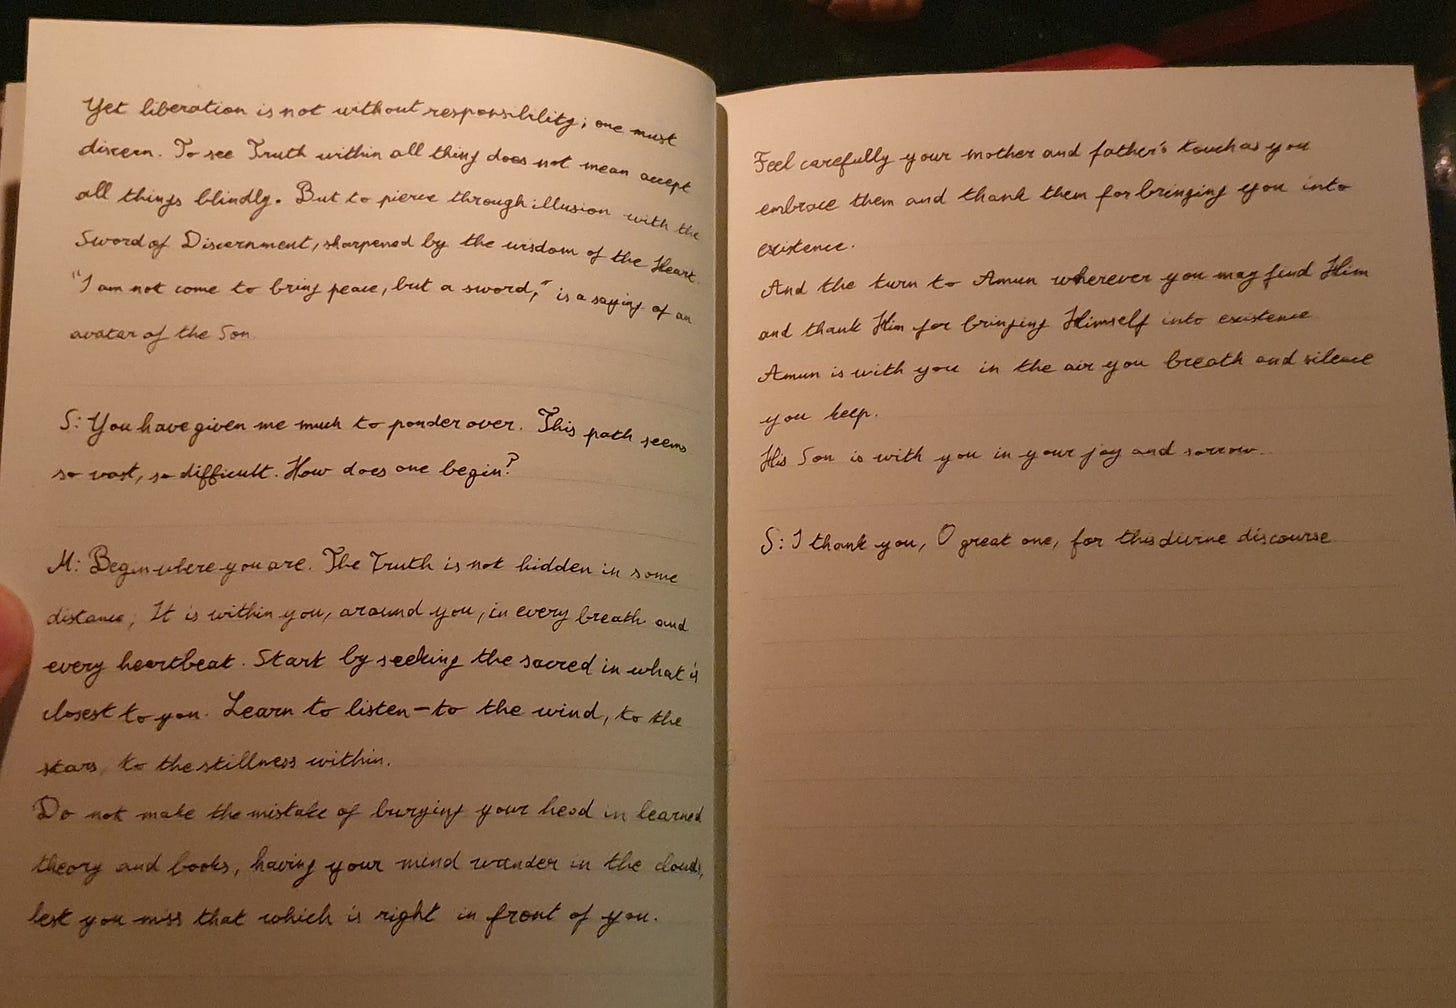 Yet liberation is not without responsibility; one must
discern. To see Truth within all thing does not mean accept
all things blindly. But to pierce through illusion with the
Sword of Discernment, sharpened by the wisdom of the Heart.
"I am not come to bring peace, but a sword," is a saying of an
avatar of the Son.
S: You have given me much to ponder over. This path seems
so vast, so difficult. How does one begin?
M: Begin where you are. The Truth is not hidden in some
distance; It is within you, around you, in every breath and
every heartbeat. Start by seeking the sacred in what is
closest to you. Learn to listen—to the wind, to the
stars, to the stillness within.
Do not make the mistake of burying your head in learned
theory and books, having your mind wander in the clouds,
lest you miss that which is right in front of you.
Feel carefully your mother and father's touch as you
embrace them and thank them for bringing you into
existence.
And the turn to Amun wherever you may find Him
and thank Him for bringing Himself into existence
Amun is with you in the air you breath and silence
you keep.
His Son is with you in your joy and sorrow.
S: I thank you, O great one, for this divine discourse